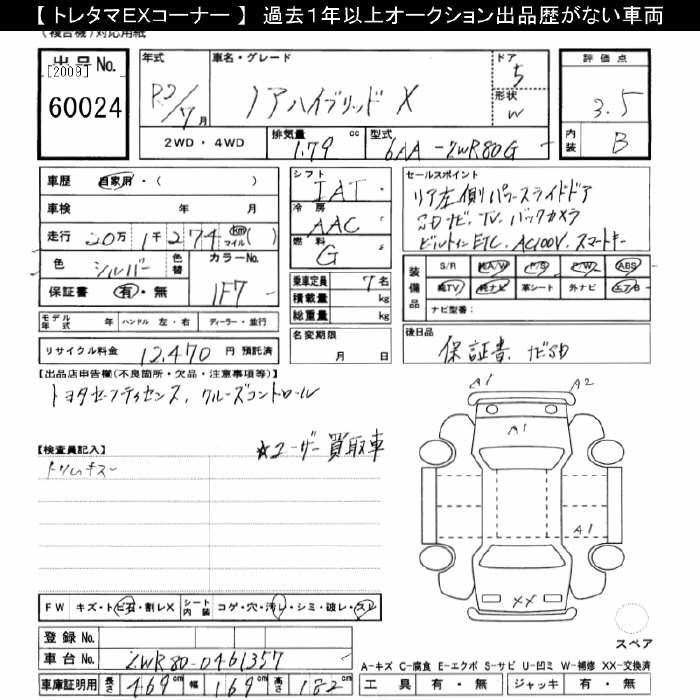 【 トレタマEXコーナー 】 過去1年以上オークション出品歴がない車両
(複合機)対応用紙
出品 No.
[2009]
60024
年式
R2/7月
車名・グレード
ノアハイブリッド X
ドア
5
形状
W
評価点
3.5
内装
B
2WD・4WD
排気量
1.79 cc
型式
6AA-ZWR80G
車歴 自家用・( )
車検 年 月
走行 20万1千274 km マイル ( )
色 シルバー 色替
カラーNo.
1F7
保証書 有・無
シフト
IAT
冷房
AAC
燃料
G
乗車定員 7名
積載量 kg
総重量 kg
名変期限
月 日
セールスポイント
リア左側パワースライドドア
SDナビ、TV、バックカメラ
ビルトインETC、AC100V、スマートキー
装備品
S/R 純A/W P/S P/W ABS
純TV 純ナビ 革シート 外ナビ エアB
ナビ型番:
後日品
保証書、ナビSD
モデル年式 年 ハンドル 左・右 ディーラー・並行
リサイクル料金 12,470 円 預託済
【出品店申告欄(不良箇所・欠品・注意事項等)】
トヨタセーフティセンス、クルーズコントロール
☆ユーザー買取車
【検査員記入】
トリムキズー
A1
A2
A1
A1
XX
スペア
FW キズ・トビ石・割レX
シート内装 コゲ・穴・汚レ・シミ・破レ・スレ
登録 No.
車台 No. ZWR80-0461357
車庫証明用 長さ 469cm 幅 169cm 高さ 182cm
A-キズ C-腐食 E-エクボ S-サビ U-凹ミ W-補修 XX-交換済
工具 有・無 ジャッキ 有・無